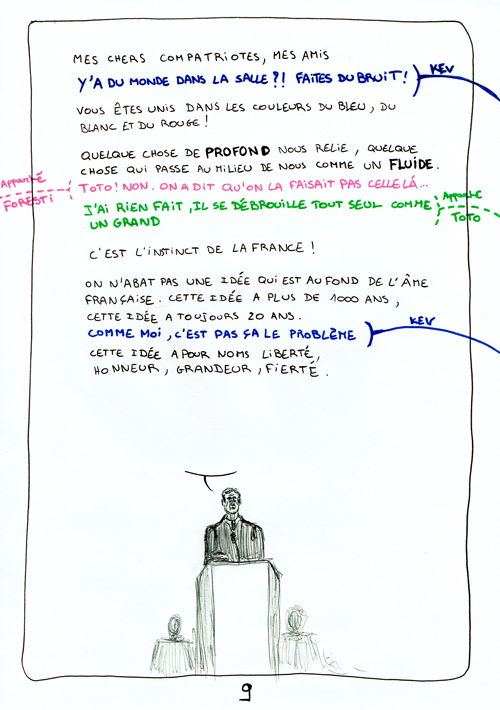 MES CHERS COMPATRIOTES, MES AMIS
KEV
Y'A DU MONDE DANS LA SALLE?! FAITES DU BRUIT!
VOUS ÊTES UNIS DANS LES COULEURS DU BLEU, DU
BLANC ET DU ROUGE!
QUELQUE CHOSE DE PROFOND NOUS RELIE, QUELQUE
CHOSE QUI PASSE AU MILIEU DE NOUS COMME UN FLUIDE.
Apparté
FORESTI
TOTO! NON. ON A DIT QU'ON LA FAISAIT PAS CELLE LÀ...
J'AI RIEN FAIT, IL SE DÉBROUILLE TOUT SEUL COMME
UN GRAND
Apparté
TOTO
C'EST L'INSTINCT DE LA FRANCE!
ON N'ABAT PAS UNE IDÉE QUI EST AU FOND DE L'ÂME
FRANÇAISE. CETTE IDÉE A PLUS DE 1000 ANS,
CETTE IDÉE A TOUJOURS 20 ANS.
KEV
COMME MOI, C'EST PAS ÇA LE PROBLÈME
CETTE IDÉE A POUR NOMS LIBERTÉ,
HONNEUR, GRANDEUR, FIERTÉ.
9